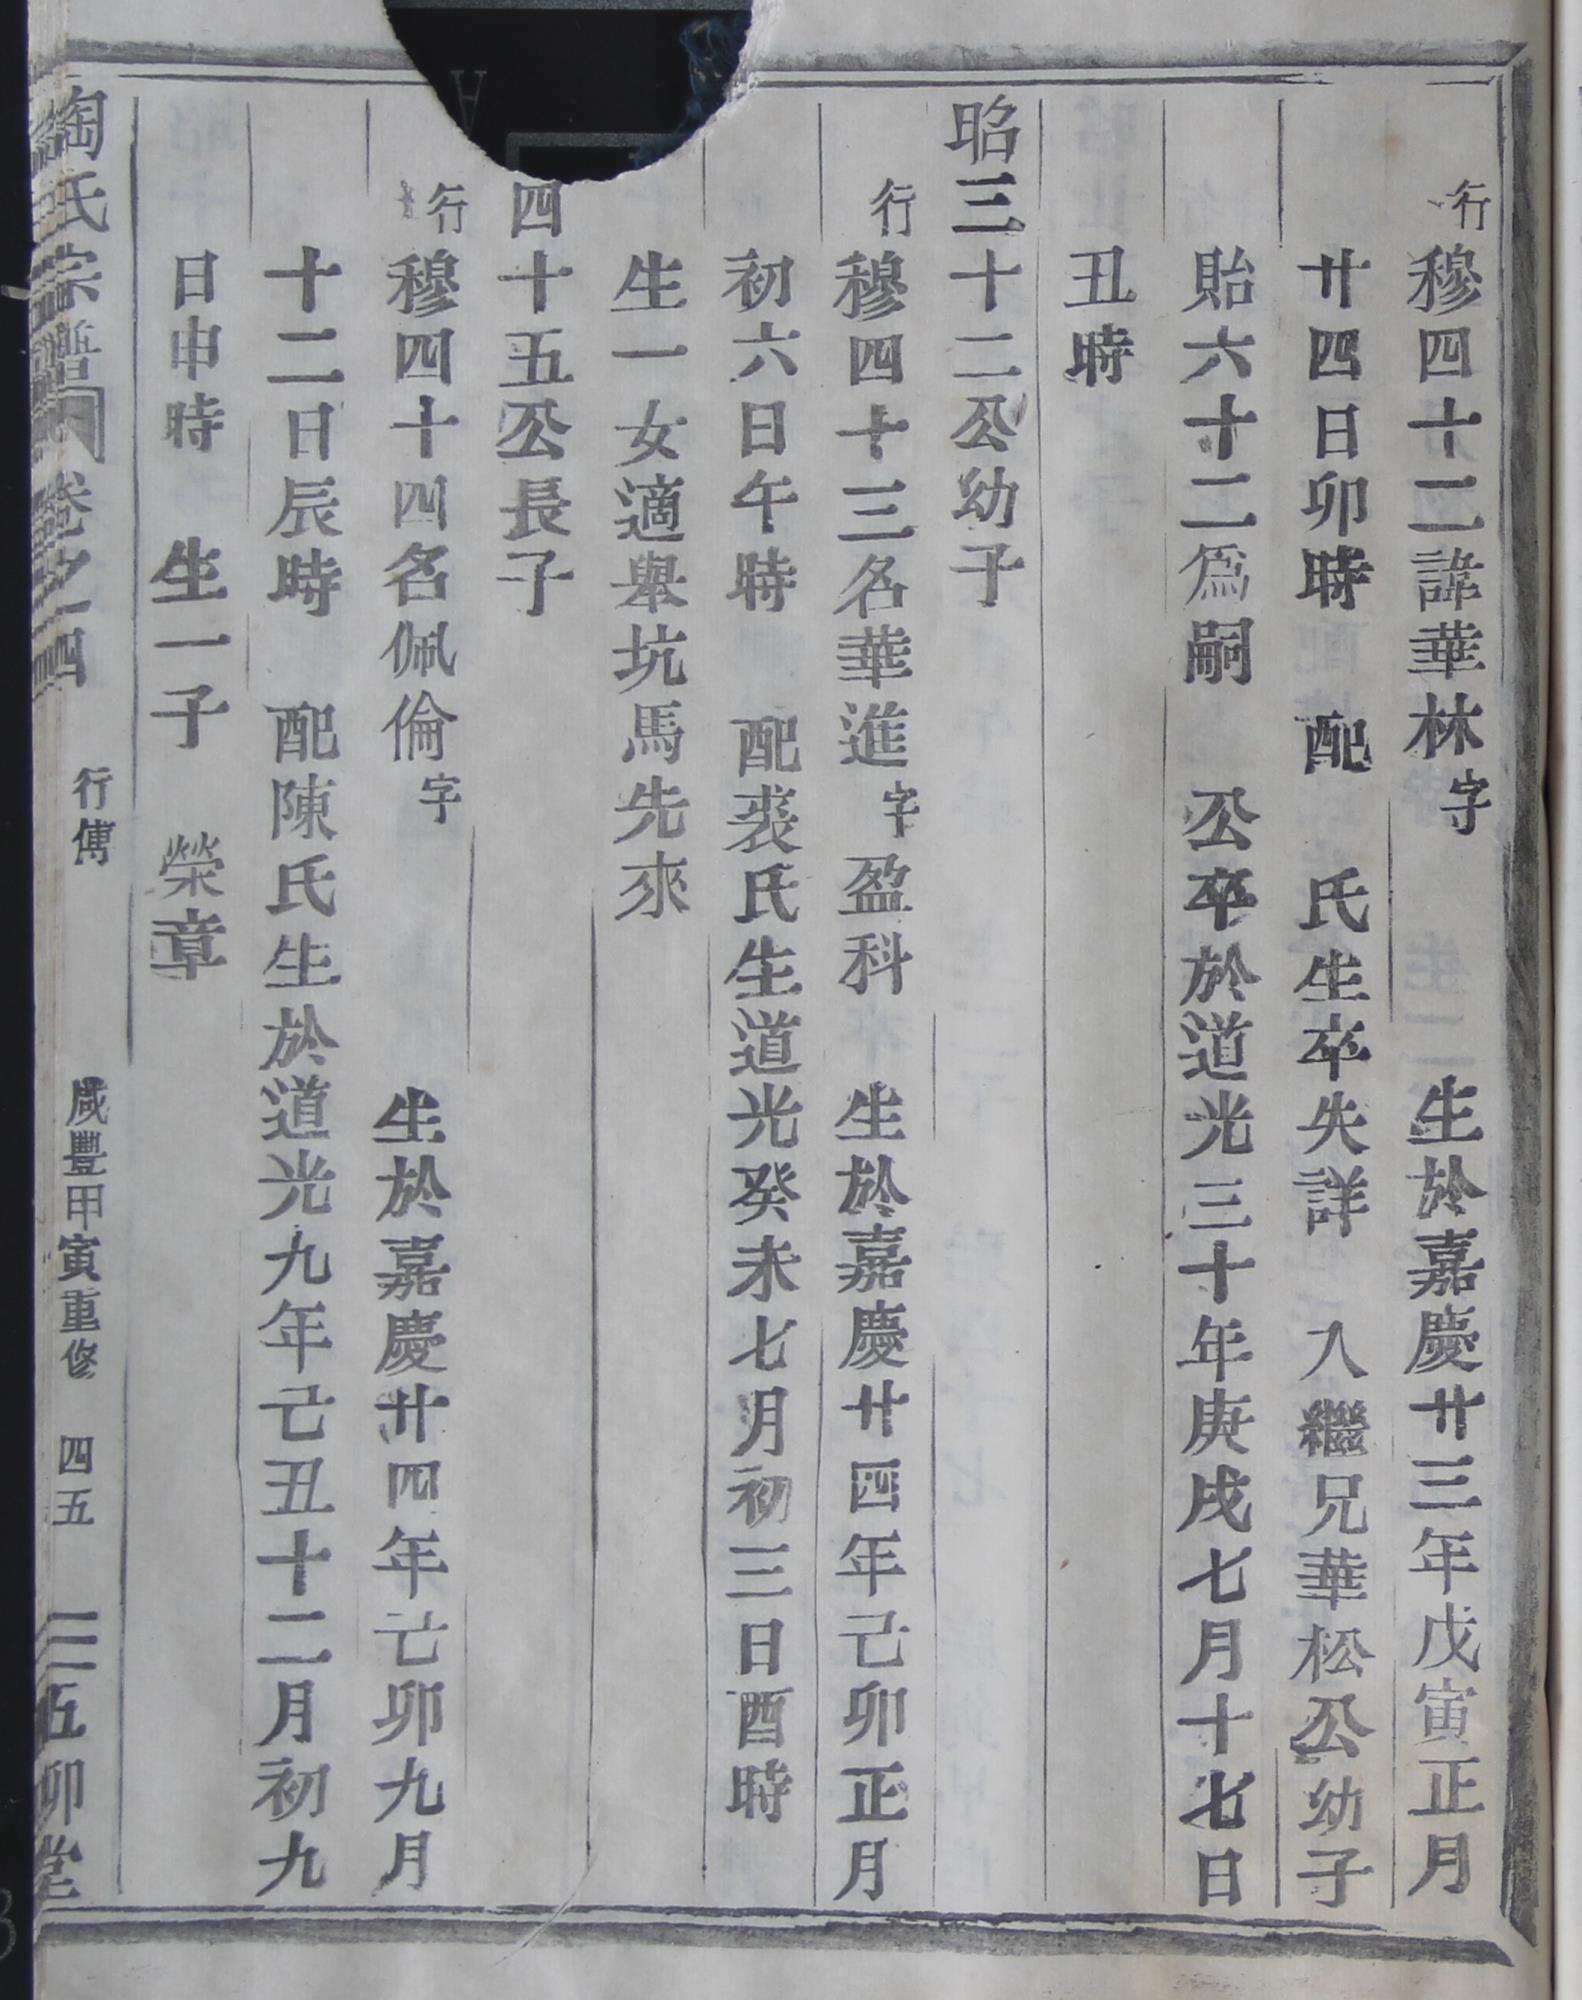 行穆四十二諱華林字　生於嘉慶廿三年戊寅正月
廿四日卯時　配　氏生卒失詳　入繼兄華松公幼子
貽六十二爲嗣　公卒於道光三十年庚戌七月十七日
丑時
昭三十二公幼子
行穆四十三名華進字盈科　生於嘉慶廿四年己卯正月
初六日午時　配裘氏生道光癸未七月初三日酉時
生一女適舉坑馬先來
四十五公長子
行穆四十四名佩倫字　生於嘉慶廿四年己卯九月
十二日辰時　配陳氏生於道光九年己丑十二月初九
日申時　生一子　榮章
陶氏宗譜　卷之四　行傳　咸豐甲寅重修　四五　三五卯堂